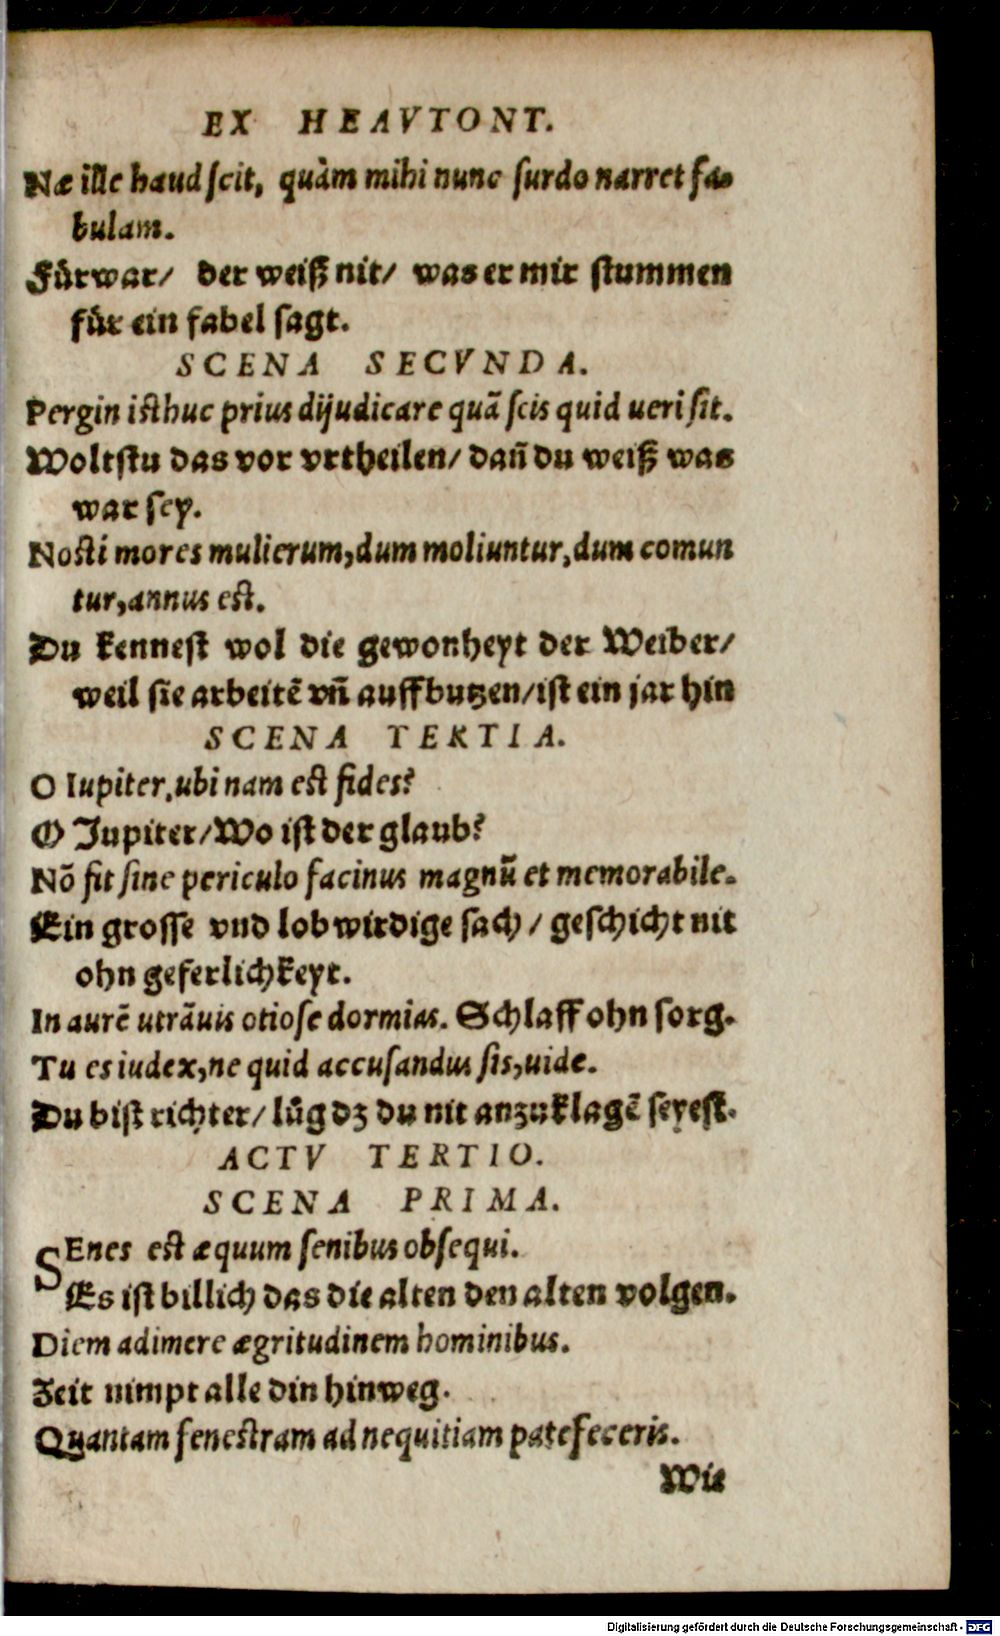 EX HEAVTONT.
Næ ille haud scit, quàm mihi nunc surdo narret fa-
bulam.
Fürwar/ der weiß nit/ was er mir stummen
für ein fabel sagt.
SCENA SECVNDA.
Pergin isthuc prius dijudicare quã scis quid ueri sit.
Woltstu das vor vrtheilen/ dañ du weiß was
war sey.
Nosti mores mulierum, dum moliuntur, dum comun
tur, annus est.
Du kennest wol die gewonheyt der Weiber/
weil sie arbeitẽ vñ auffbutzen/ ist ein jar hin
SCENA TERTIA.
O Iupiter, ubi nam est fides?
O Jupiter/ Wo ist der glaub?
Nõ fit sine periculo facinus magnũ et memorabile.
Ein grosse vnd lobwirdige sach/ geschicht nit
ohn geferlichkeyt.
In aurẽ utrãuis otiose dormias. Schlaff ohn sorg.
Tu es iudex, ne quid accusandus sis, uide.
Du bist richter/ lůg dz du nit anzuklagẽ seyest.
ACTV TERTIO.
SCENA PRIMA.
SEnes est æquum senibus obsequi.
Es ist billich das die alten den alten volgen.
Diem adimere ægritudinem hominibus.
Zeit nimpt alle din hinweg.
Quantam fenestram ad nequitiam patefeceris.
Wie
Digitalisierung gefördert durch die Deutsche Forschungsgemeinschaft - DFG